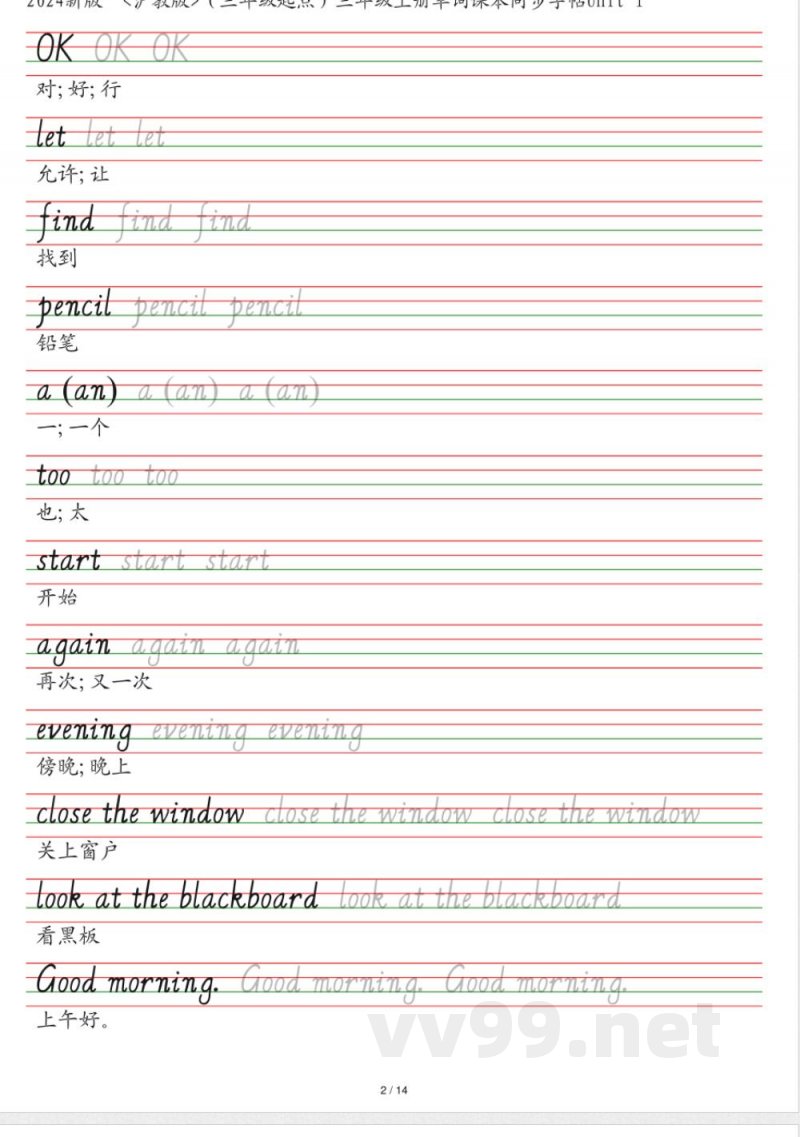 2024新版 《沪教版》(三年级起点)三年级上册单词课本同步字帖Unit 1
OK OK OK
对; 好; 行
let let let
允许; 让
find find find
找到
pencil pencil pencil
铅笔
a (an) a (an) a (an)
一; 一个
too too too
也; 太
start start start
开始
again again again
再次; 又一次
evening evening evening
傍晚; 晚上
close the window close the window close the window
关上窗户
look at the blackboard look at the blackboard
看黑板
Good morning. Good morning. Good morning.
上午好。
vv99.net
2 / 14